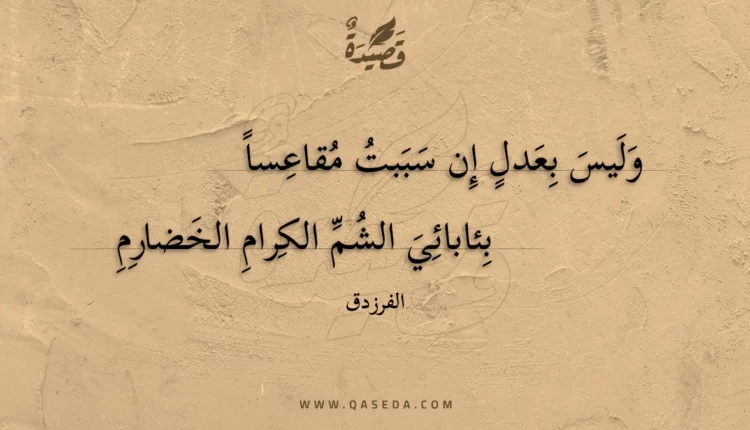 قَصِيدَةٌ
وَلَيسَ بِعَدلٍ إِن سَبَبتُ مُقاعِساً
بِئابائِيَ الشُمِّ الكِرامِ الخَضارِمِ
الفرزدق
WWW.QASEDA.COM